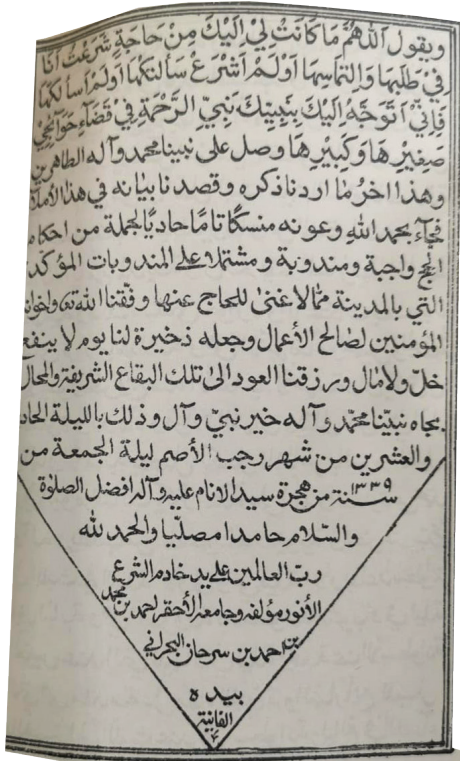 ويقول اللهم ما كانت لي اليك من حاجة شرعت انا
في طلبها والتماسها او لم اشرع سالتكها او لم اسالكها
فاني اتوجه اليك بنبيك نبي الرحمة في قضاء حوائجي
صغيرها وكبيرها وصل على نبينا محمد وآله الطاهرين
وهذا اخر ما اردنا ذكره وقصدنا بيانه في هذا الاملا
فجآء بحمد الله وعونه منسكًا تامًا حاديًا لجملة من احكام
الحج واجبة ومندوبة ومشتملا على المندوبات المؤكدة
التي بالمدينة مما لا غنى للحاج عنها وفقنا الله تع واخوانـ
المؤمنين لصالح الأعمال وجعله ذخيرة لنا يوم لا ينفع
خلّ ولا مال ورزقنا العود الى تلك البقاع الشريفة والمحال
بجاه نبيّنا محمّد وآله خير نبيّ وآل وذلك بالليلة الحاد
والعشرين من شهر رجب الأصم ليلة الجمعة من
سنة ١٣٣٩ من هجرة سيد الانام عليه وآله افضل الصلوة
والسّلام حامدا مصلّيا والحمد لله
ربّ العالمين على يد خادم الشرع
الأنور مؤلفه وجامعه الأحقر احمد بن محمد
بن احمد بن سرحان البحراني
بيده
الفانية